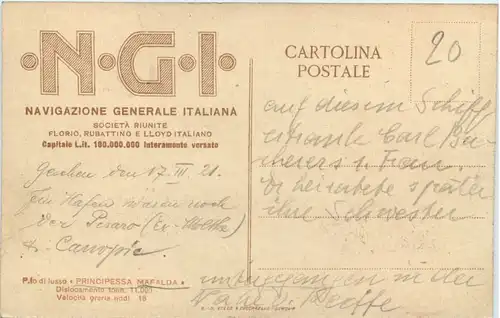 ·N·G·I·
NAVIGAZIONE GENERALE ITALIANA
SOCIETÀ RIUNITE
FLORIO, RUBATTINO E LLOYD ITALIANO
Capitale L.it. 180.000.000 interamente versato
Gesehen den 17. III. 21.
Im Hafen waren noch
der Pesaro (Ex-Moltke)
& Canopic.
P.fo di lusso « PRINCIPESSA MAFALDA »
Dislocamento tonn. 11.000
Velocità oraria nodi 18
CARTOLINA
POSTALE
20
auf diesem Schiff
ertrank Carl
Frau
Er heiratete später
ihre Schwester
untergegangen in der
Nähe v.